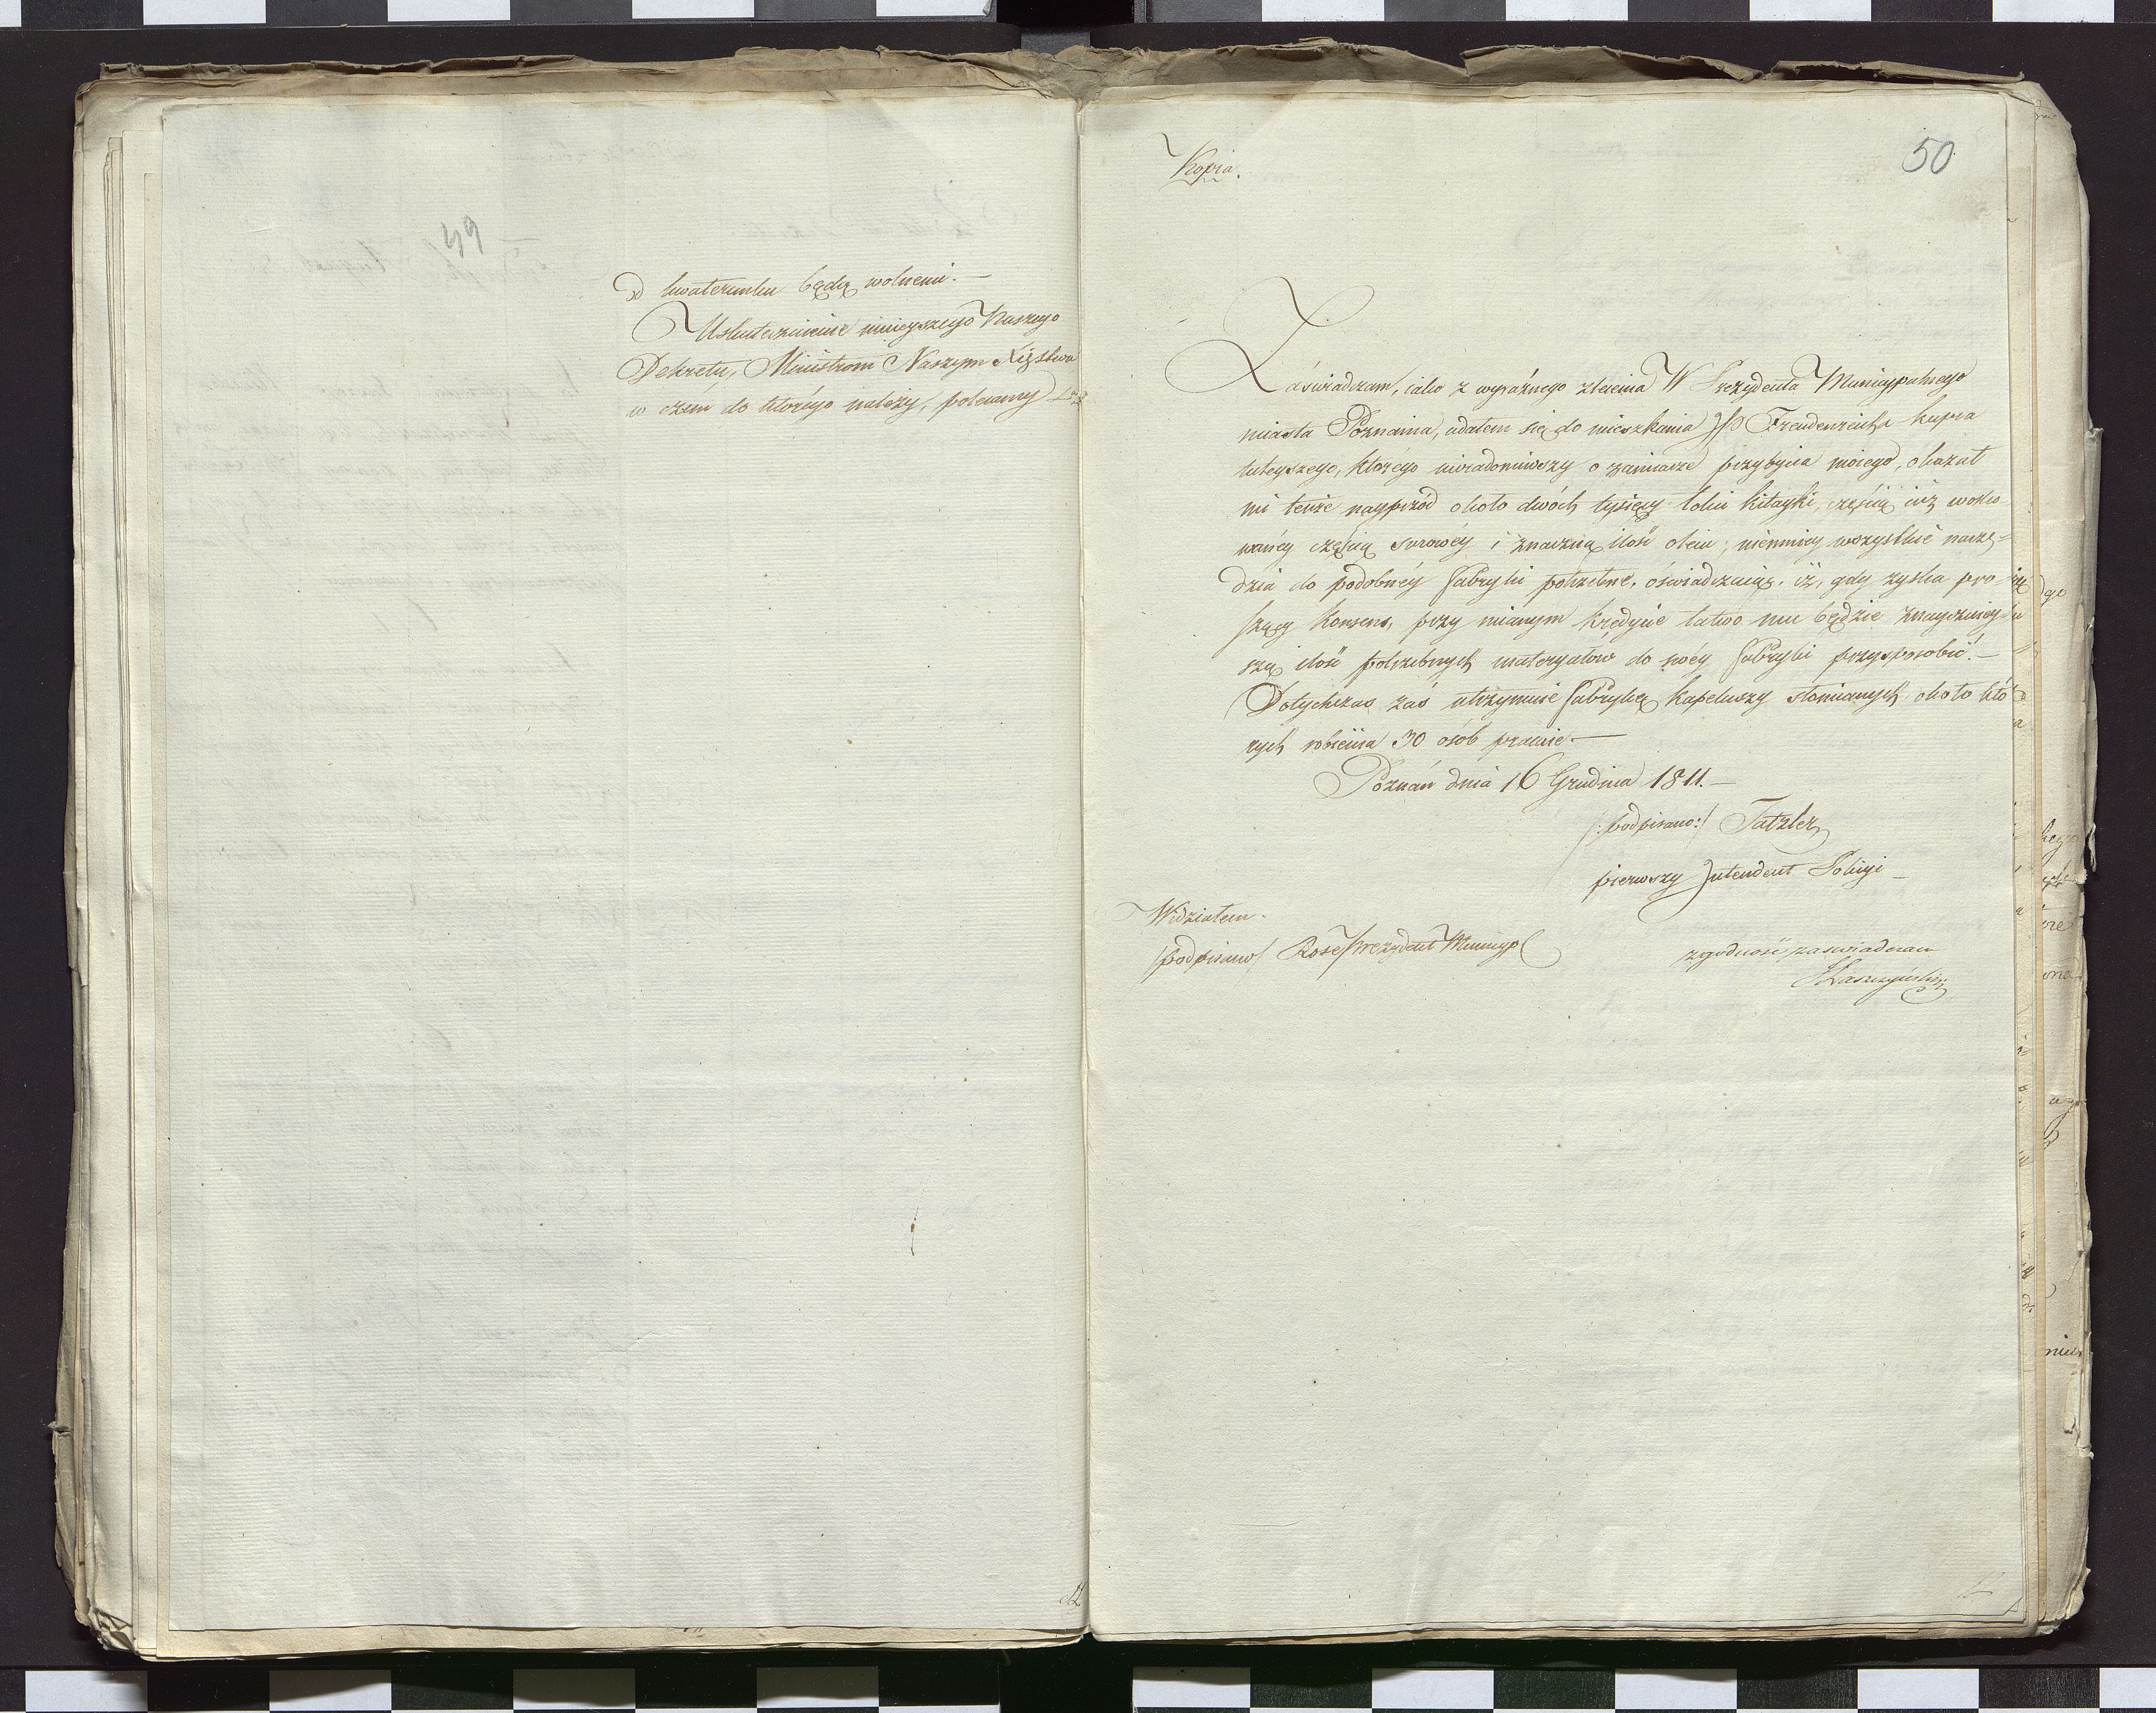 49
od kwaterunku będą wolnemi.—
Uskutecznienie ninieyszego Naszego
Dekretu, Ministrom Naszym Xięstwa
w czem do którego należy, polecamy
50
Kopia.
Zaświadczam, iako z wyraźnego zlecenia W Prezydenta Municypalnego
miasta Poznania, udałem się do mieszkania JP Freudenreicha kupca
tuteyszego, którego uwiadomiwszy o zamiarze przybycia moiego, okazał
mi tenże nayprzód około dwóch tysięcy łokci kitayki, częścią iuż wosko-
wanéy częścią surowéy i znaczną ilość oleiu; niemniey wszystkie narzę-
dzia do podobnéy fabryki potrzebne, oświadczaiąc, iż, gdy zyska pro-
szący konsens, przy mianym kredycie łatwo mu będzie znaczniey-
szą ilość potrzebnych materyałów do swéy fabryki przysposobić.—
Dotychczas zaś utrzymuie fabrykę kapeluszy słomianych, około któ
rych robienia 30 osób pracuie.—
Poznań dnia 16 Grudnia 1811.—
/:podpisano:/ Tatzler
pierwszy Intendent Policyi—
Widziałem.
/podpisano/ Rose Prezydent Municyp
zgodność zaswiadczam
12
12